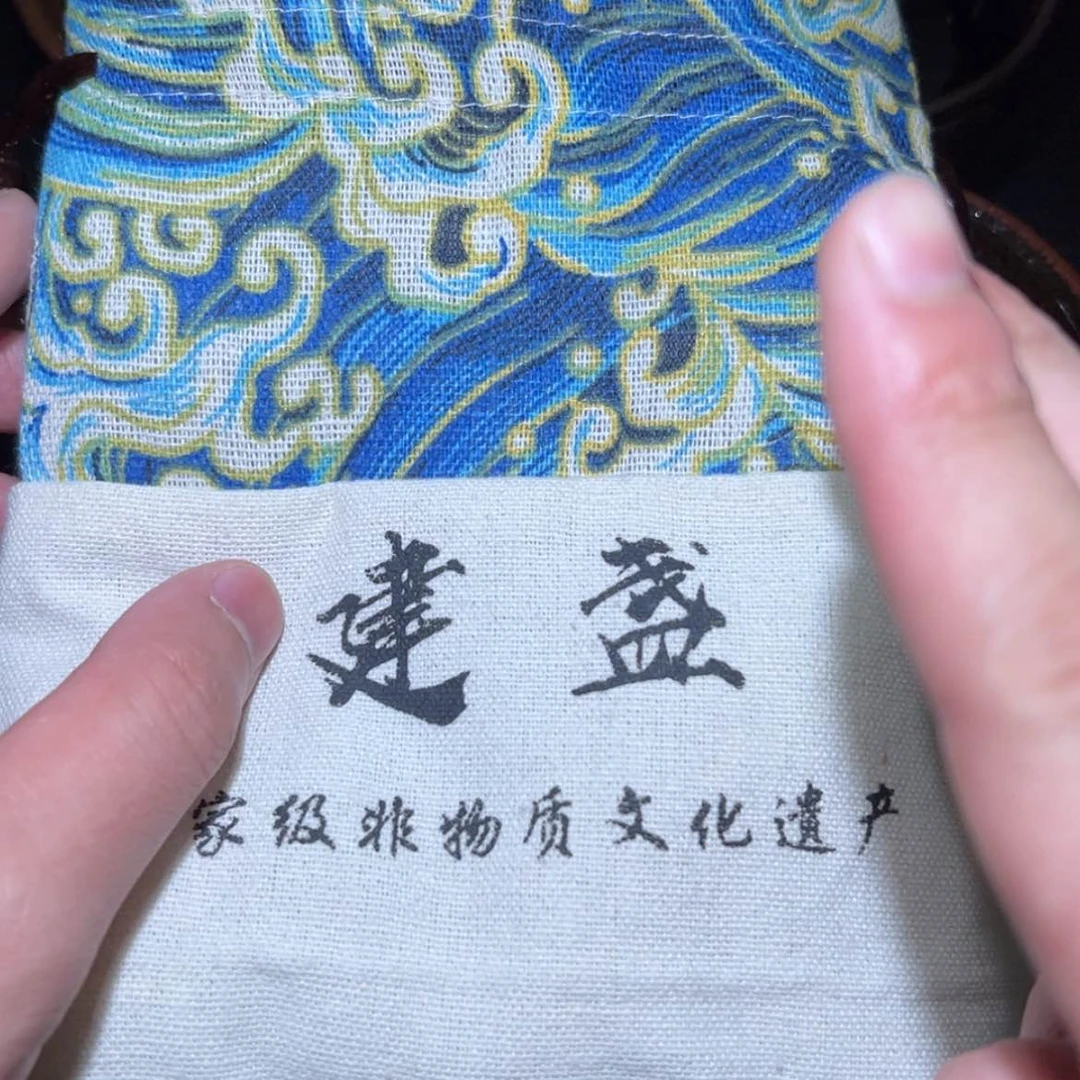 建盏
家级非物质文化遗产